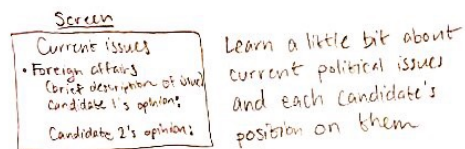 Screen
Current issues
• Foreign affairs
(brief description of issue)
Candidate 1's opinion:
Candidate 2's opinion:
Learn a little bit about
current political issues
and each candidate's
position on them